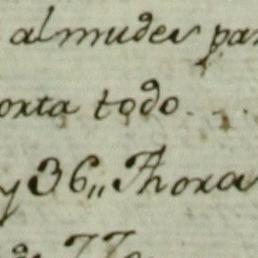 almudes par
orta todo..
y 36,, Ahora